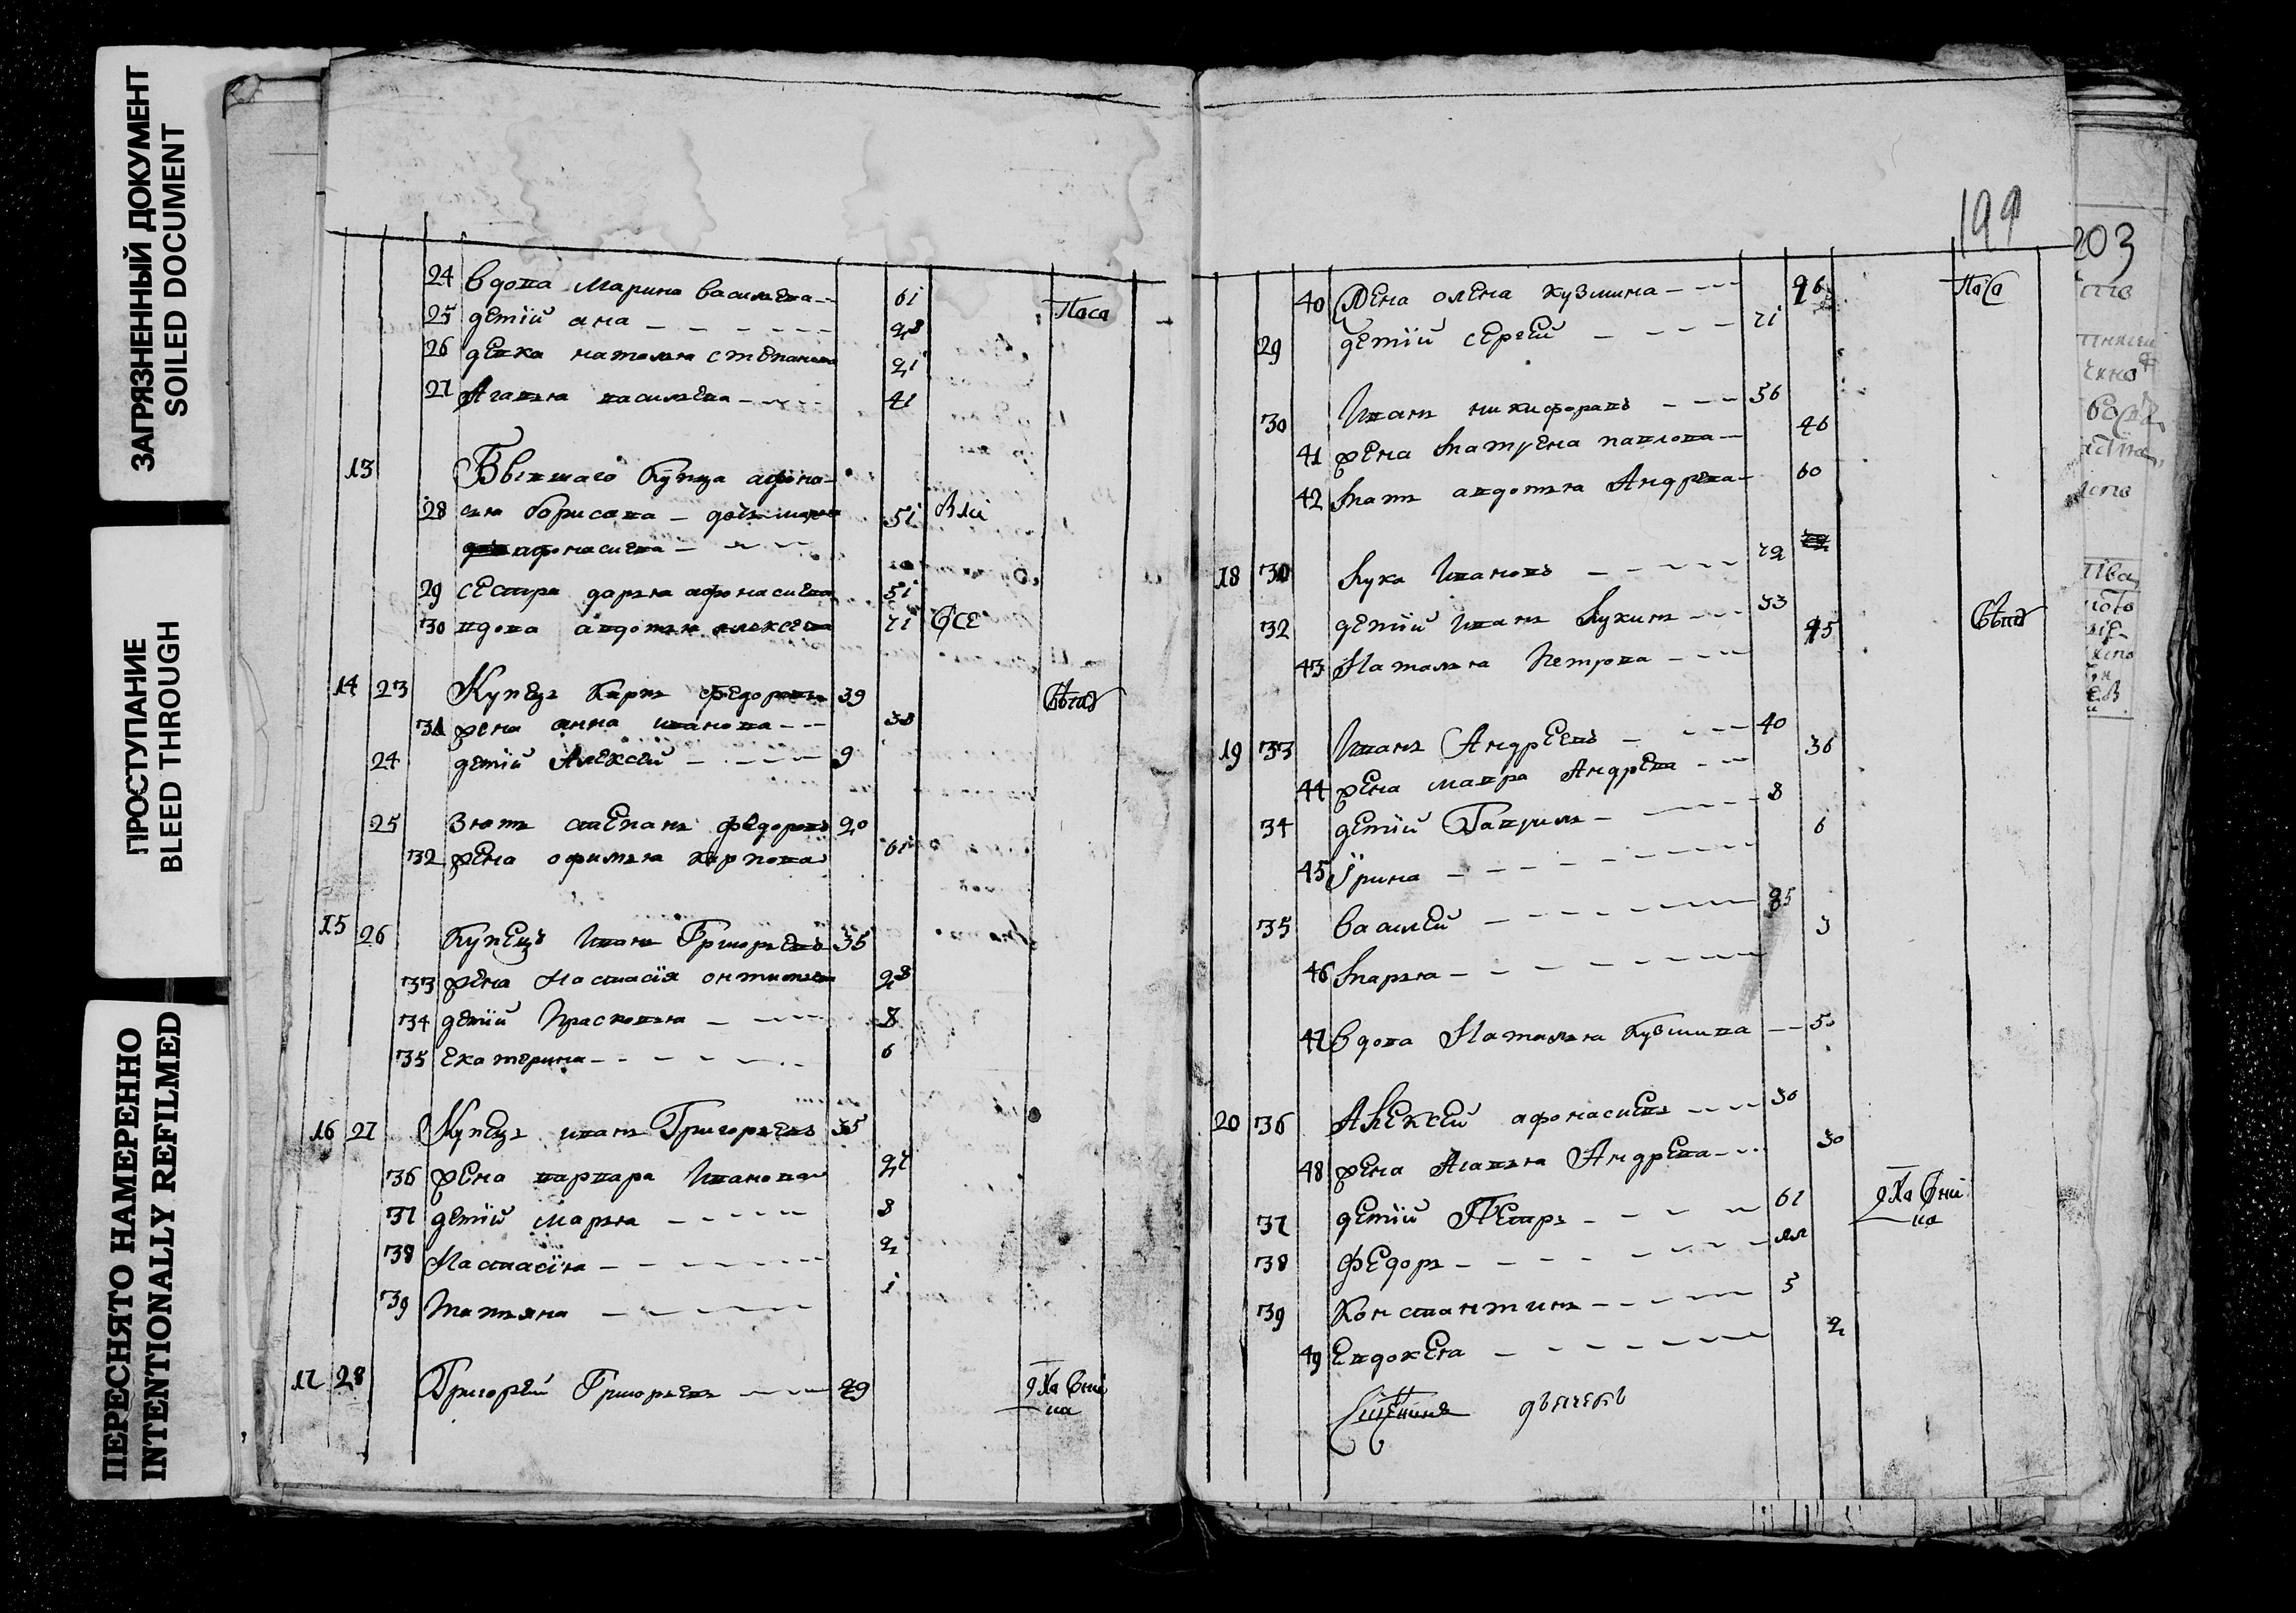 ЗАГРЯЗНЕННЫЙ ДОКУМЕНТ
SOILED DOCUMENT
ПРОСТУПАНИЕ
BLEED THROUGH
ПЕРЕСНЯТО НАМЕРЕННО
INTENTIONALLY REFILMED
24 вдова Марина васильева 61
25 детiи ана 28
26 девка наталья степанова 21
27 Агавья васильева 41
13 Бывшаго купца афона-
28 сья борисова дочь 51
афонасиева
29 сестра дарья афонасиева 51
30 вдова авдотья алексева 71
14 23 Купецъ Карпъ федоровъ 39
31 жена анна иванова 38
24 детiи Алексеи 9
25 Зять степанъ федоровъ 20
32 жена офимья карпова 61
15 26 Купецъ Иванъ Григорьевъ 35
33 жена Настасiя 28
34 детiи Прасковья 8
35 екатерина 6
16 27 Купецъ иванъ Григорьевъ 35
36 жена варвара Иванова 27
37 детiи марья 8
38 Настасiя 2
39 татьяна 1
17 28 Григореи Григорьевъ 49
199
203
40 жена олена кузмина 26
29 детiи сергеи 71
30 Иванъ никифоравъ 56
41 жена матрена павлова 46
42 мать авдотья Андрева 60
18 30 лука Ивановъ 72
32 детiи Иванъ лукинъ 33
43 Наталья Петрова 25
19 33 Иванъ Андреевъ 40
44 жена мавра Андрева 36
34 детiи Гаврила 8
45 Iрина 6
35 василеи
46 марья 3
47 вдова Наталья 50
20 36 Алексеи афонасиевъ 30
48 жена Агавья Андрева 30
37 детiи Петръ 61
38 федоръ
39 Константинъ 5
49 Евдокея 2